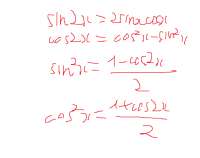 sin2x = 2sinxcosx
cos2x = cos²x-sin²x
sin²x = (1-cos2x)/2
cos²x = (1+cos2x)/2